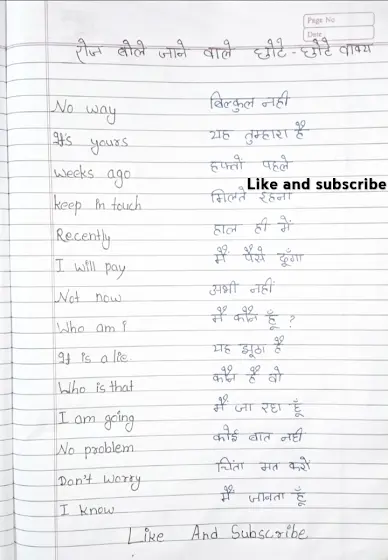 Page No
Date
रोज बोले जाने वाले छोटे-छोटे वाक्य
No way बिल्कुल नही
It's yours यह तुम्हारा है
Weeks ago हफ्तों पहले
Like and subscribe
keep in touch मिलते रहना
Recently हाल ही में
I will pay मैं पैसे दूँगा
Not now अभी नहीं
Who am i मैं कौन हूँ ?
It is a lie. यह झूठा है
Who is that कौन है वो
I am going मैं जा रहा हूँ
No problem कोई बात नही
Don't worry चिंता मत करो
I know मैं जानता हूँ
Like And Subscribe